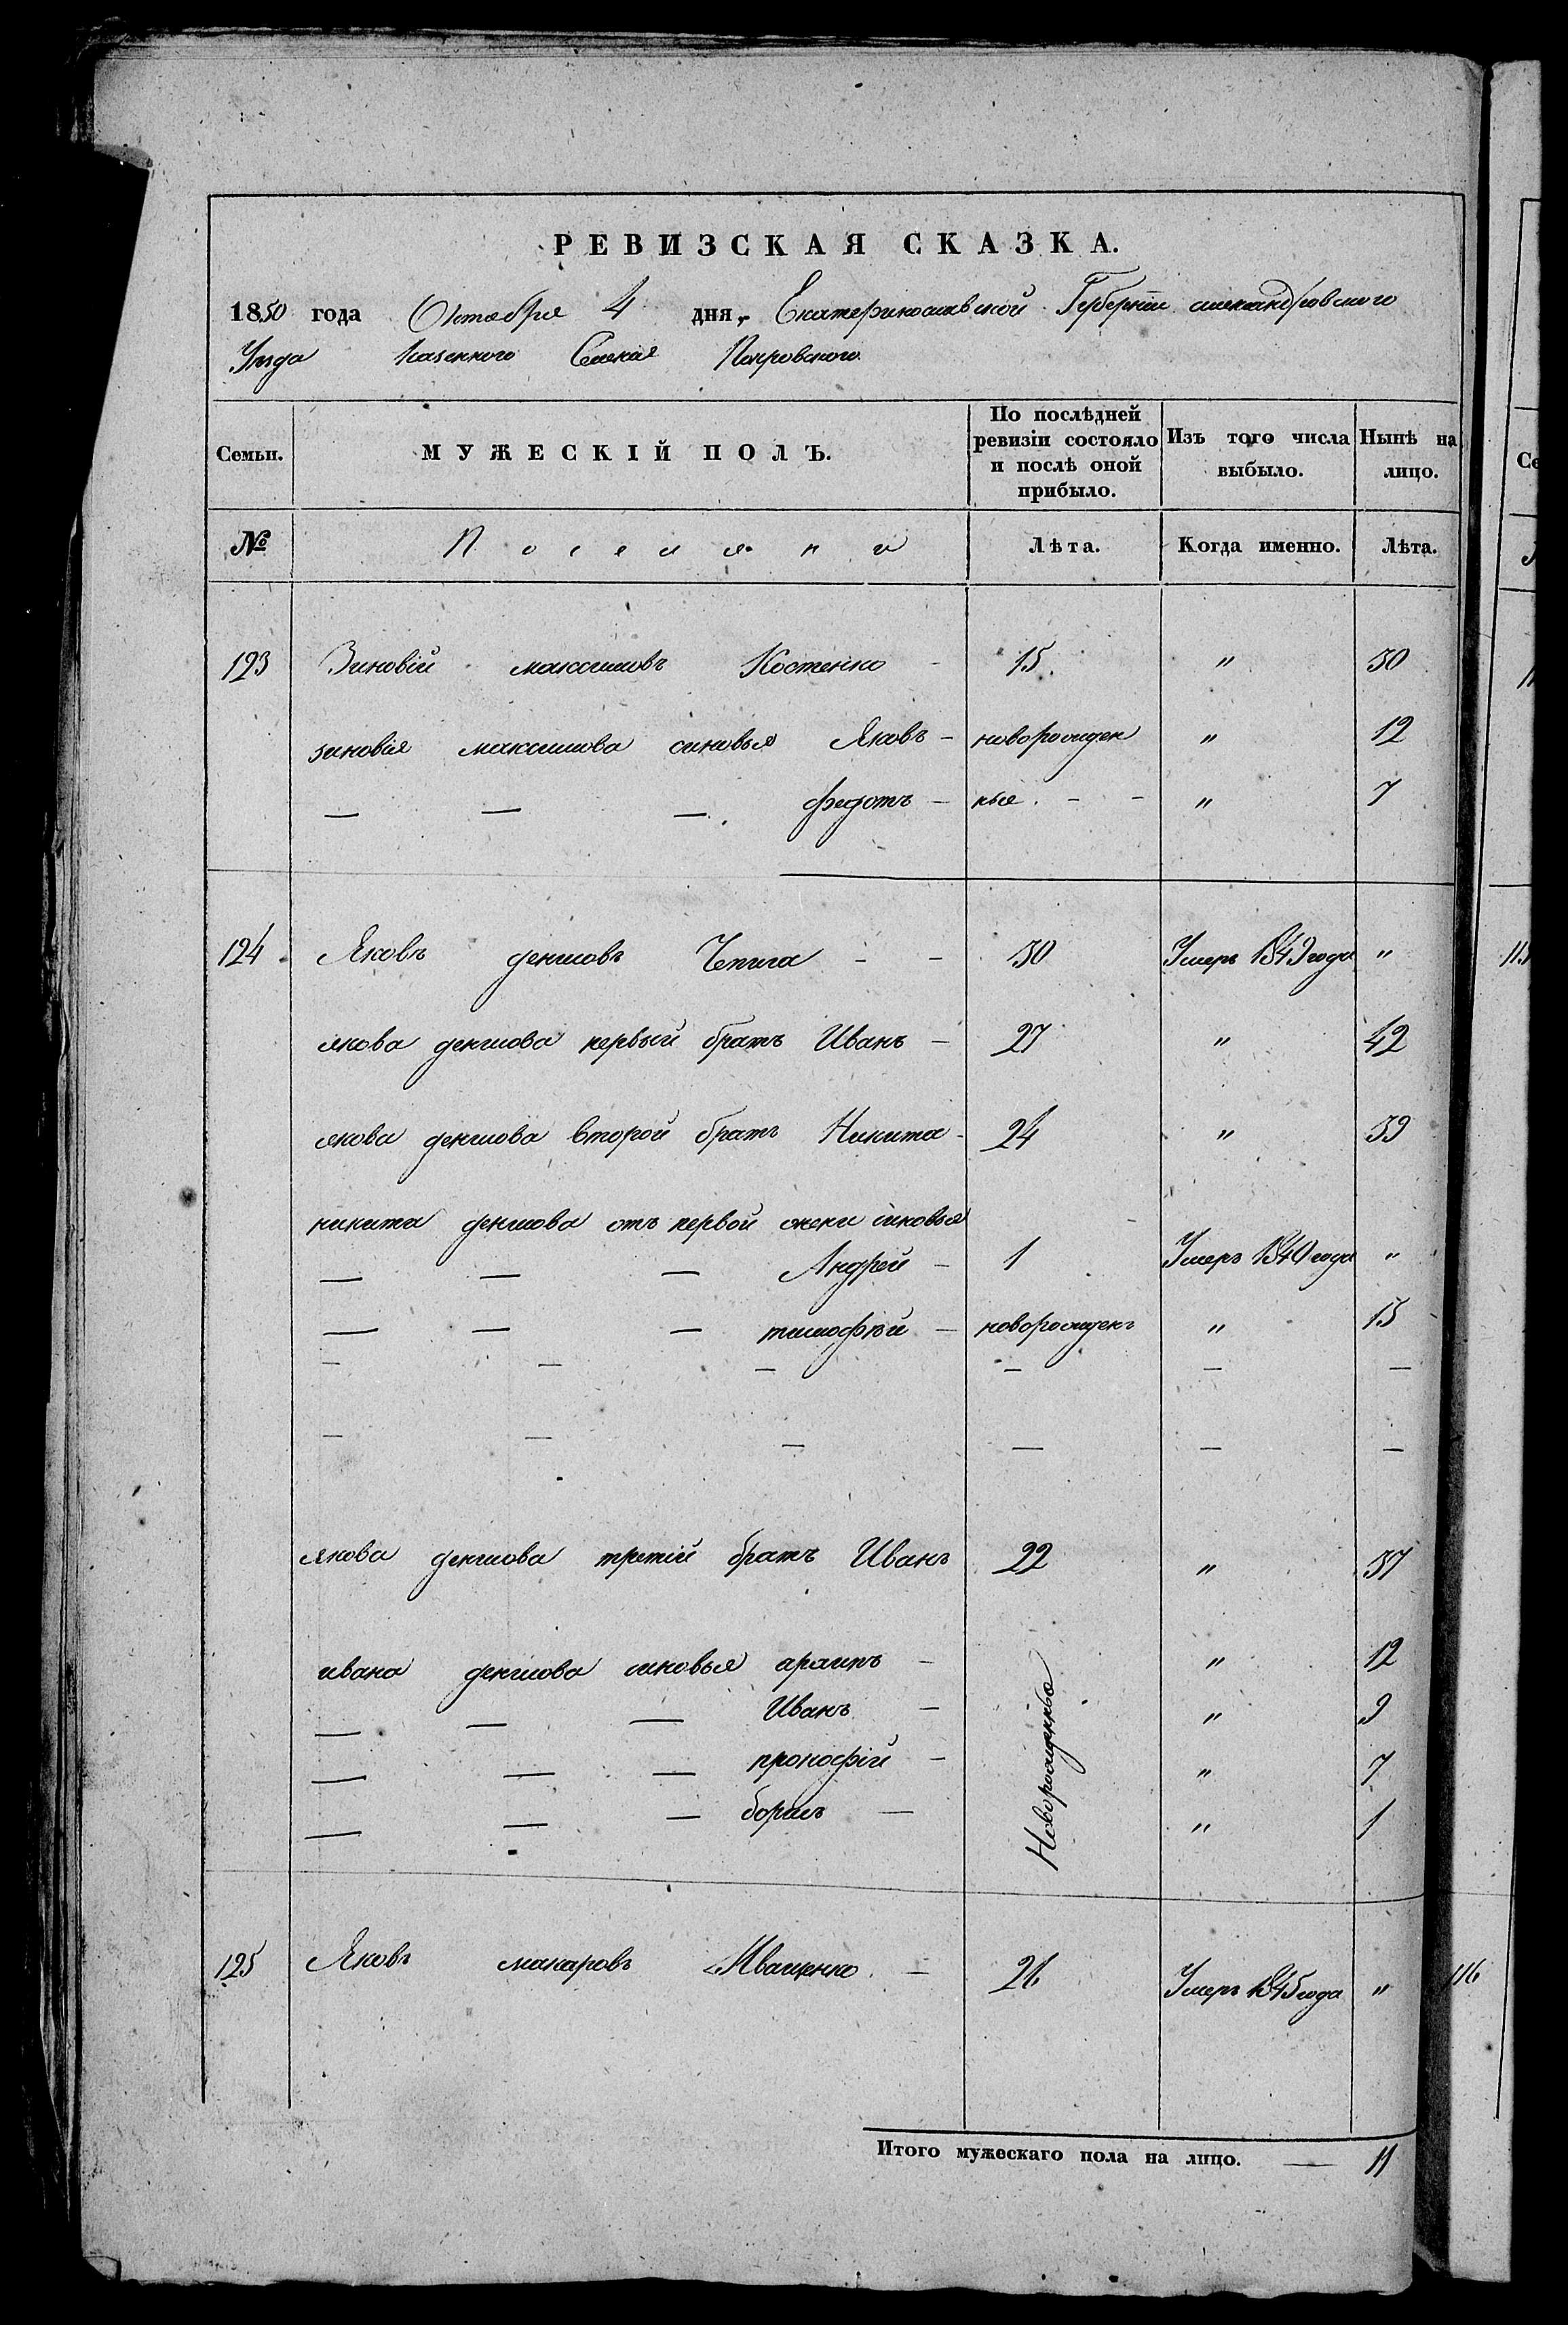 РЕВИЗСКАЯ СКАЗКА.
1850 года Октября 4 дня, Екатеринославской Губернiи александровского
Уезда Казенного Селенiя Покровского
Семьи. МУЖЕСКІЙ ПОЛЪ. По послѣдней ревизіи состояло и послѣ оной прибыло. Изъ того числа выбыло. Нынѣ на лицо.
№ Поселяни Лѣта. Когда именно. Лѣта.
123 Зиновій максимовъ Костенко - 15 " 30
зиновія максимова синовья Яковъ - новорожден " 12
— — — федотъ - ные - - " 7
124 Яковъ денисовъ Чепига - - 30 Умеръ 1849 года "
якова денисова первый братъ Иванъ - 27 " 42
якова денисова второй братъ Никита - 24 " 39
никита денисова отъ первой жени синовья
— — — Андрей - 1 Умеръ 1840 года "
— — — тимофѣй - новорожденъ " 15
— — — — — —
— — — — — —
якова денисова третій братъ Иванъ 22 " 37
ивана денисова синовья архипъ - Новорожденные " 12
— — — Иванъ - " 9
— — — прокофій - " 7
— — — борисъ - " 1
125 Яковъ макаровъ Иващенко - 26 Умеръ 1845 года "
116
Итого мужескаго пола на лицо. — 11